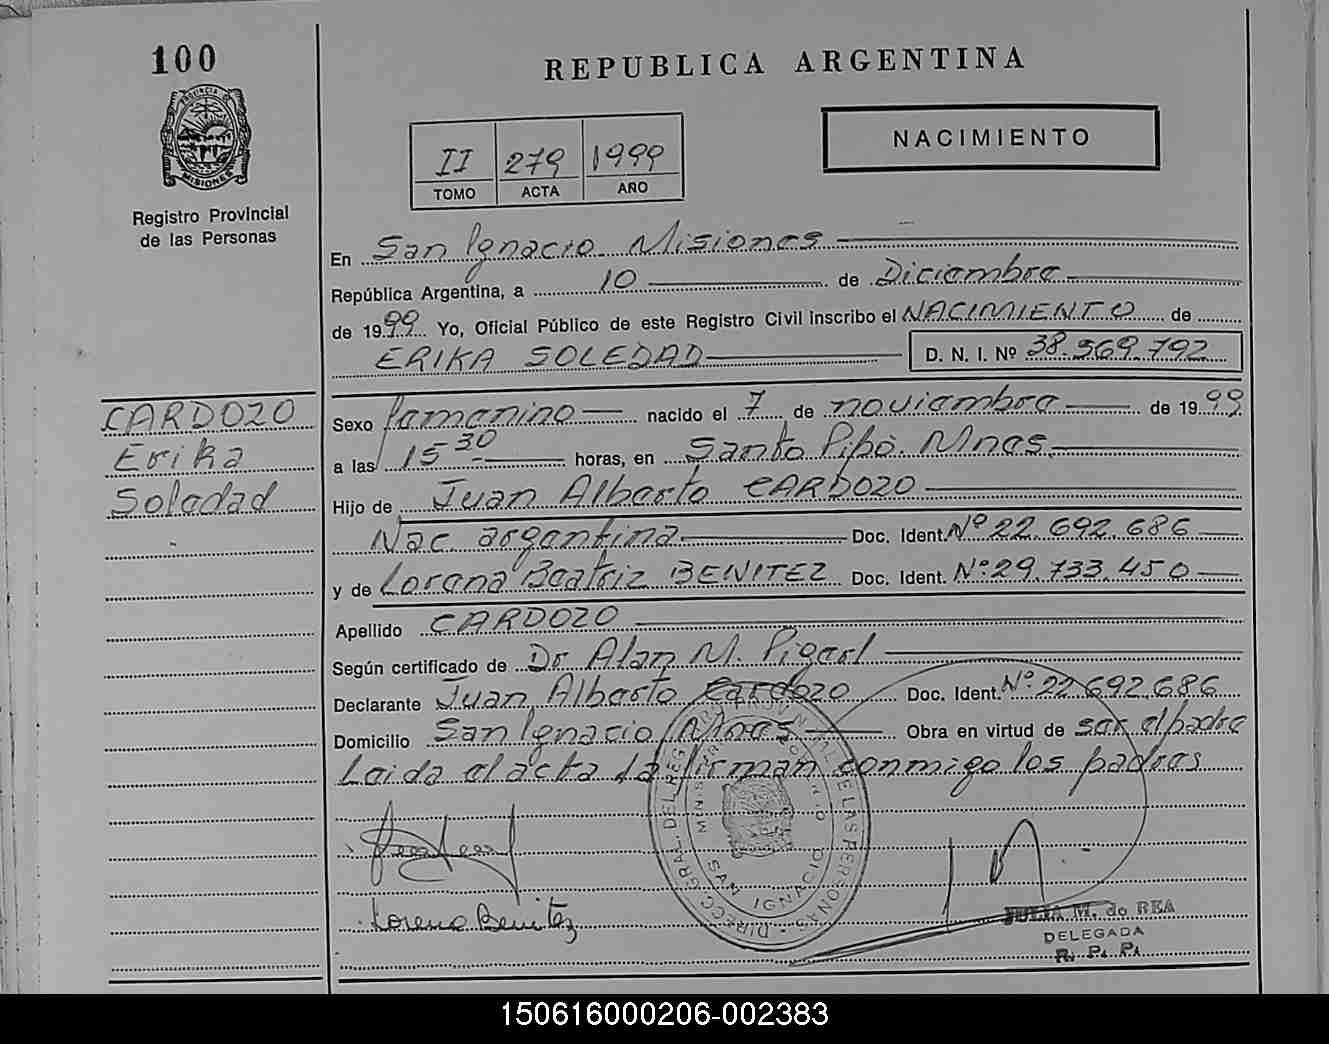 100
REPUBLICA ARGENTINA
PROVINCIA DE
MISIONES
Registro Provincial
de las Personas
II 279 1999
TOMO ACTA AÑO
NACIMIENTO
En San Ignacio Misiones
República Argentina, a 10 de Diciembre
de 1999 Yo, Oficial Público de este Registro Civil inscribo el NACIMIENTO de
ERIKA SOLEDAD D. N. I. Nº 38.569.792
CARDOZO
Erika
Soledad
Sexo femenino nacido el 7 de noviembre de 1999
a las 15 30 horas, en Santo Pipó. Mnes.
Hijo de Juan Alberto CARDOZO
Nac. argentina Doc. Ident. Nº 22.692.686
y de Lorena Beatriz BENITEZ Doc. Ident. Nº: 29.733.450
Apellido CARDOZO
Según certificado de Dr Alan M.
Declarante Juan Alberto Cardozo Doc. Ident. Nº 22.692.686
Domicilio San Ignacio Mnes Obra en virtud de ser el padre
Leida el acta la firman conmigo los padres
SAN IGNACIO
Lorena Benitez
JULIA M. do REA
DELEGADA
R. P. P.
150616000206-002383